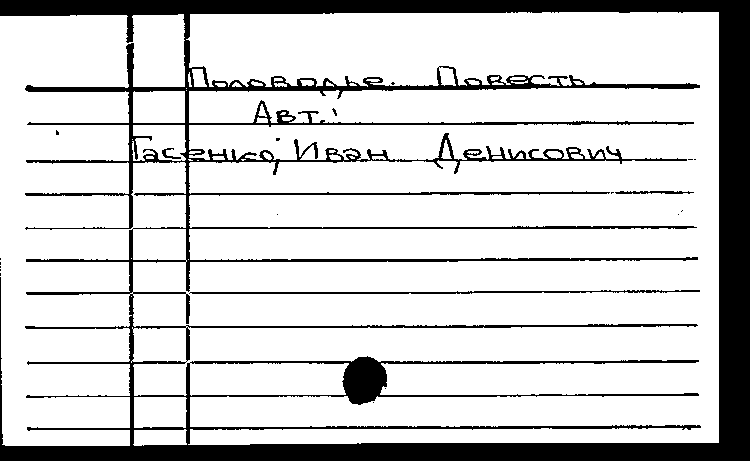 Половодье. Повесть.
Авт.:
Гасенко, Иван Денисович